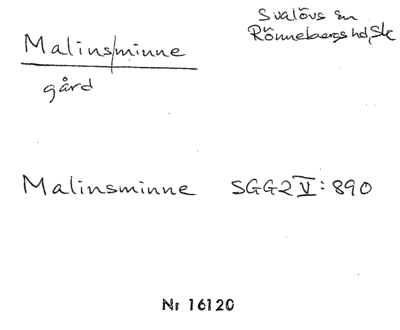 Malins/minne
gård
Svalövs sn
Rönnebergs hd, Sk
Malinsminne SGG2 V:890
Nr 16120